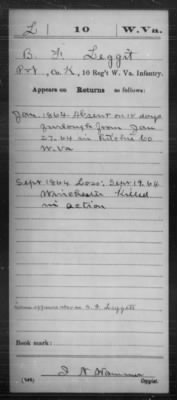 L | 10 | W. Va.
B. F. Leggit
Pvt, Co. K, 10 Reg't W. Va. Infantry.
Appears on Returns as follows:
Jan. 1864. Absent on 15 days
furlough from Jan
27, 64 in Ritchie Co
W. Va
Sept 1864 Loss: Sept 19, 64
Winchester Killed
in action
Name appears also as B. F. Leggett
Book mark:
Copyist.